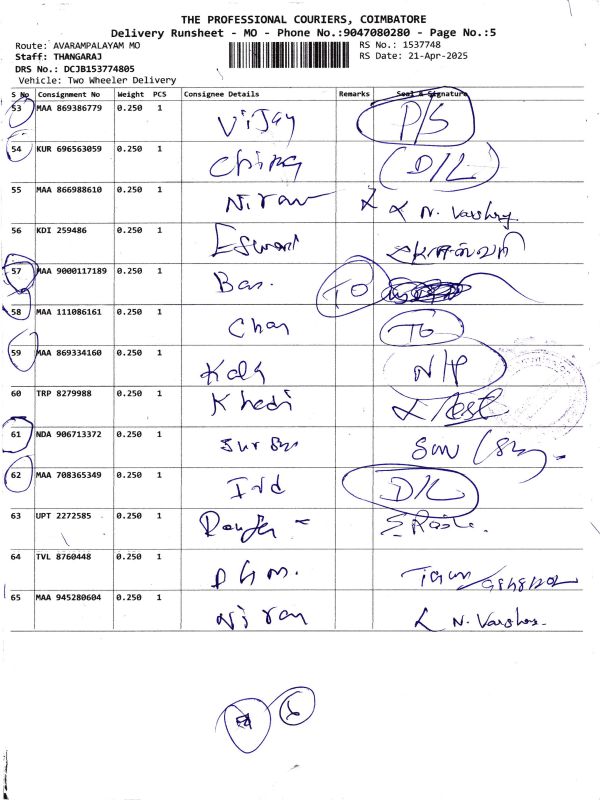 THE PROFESSIONAL COURIERS, COIMBATORE
Delivery Runsheet - MO - Phone No.:9047080280 - Page No.:5
Route: AVARAMPALAYAM MO RS No.: 1537748
Staff: THANGARAJ RS Date: 21-Apr-2025
DRS No.: DCJB153774805
Vehicle: Two Wheeler Delivery
S No Consignment No Weight PCS Consignee Details Remarks Seal & Signature
53 MAA 869386779 0.250 1 Vijay P/S
54 KUR 696563059 0.250 1 D/L
55 MAA 866988610 0.250 1 Niran N. Varshny
56 KDI 259486 0.250 1
57 MAA 9000117189 0.250 1 Ban. TO
58 MAA 111086161 0.250 1 Chan TO
59 MAA 869334160 0.250 1 N/P
60 TRP 8279988 0.250 1 Khadi
61 NDA 906713372 0.250 1
62 MAA 708365349 0.250 1 Ind D/L
63 UPT 2272585 0.250 1
64 TVL 8760448 0.250 1
65 MAA 945280604 0.250 1 Niran
6